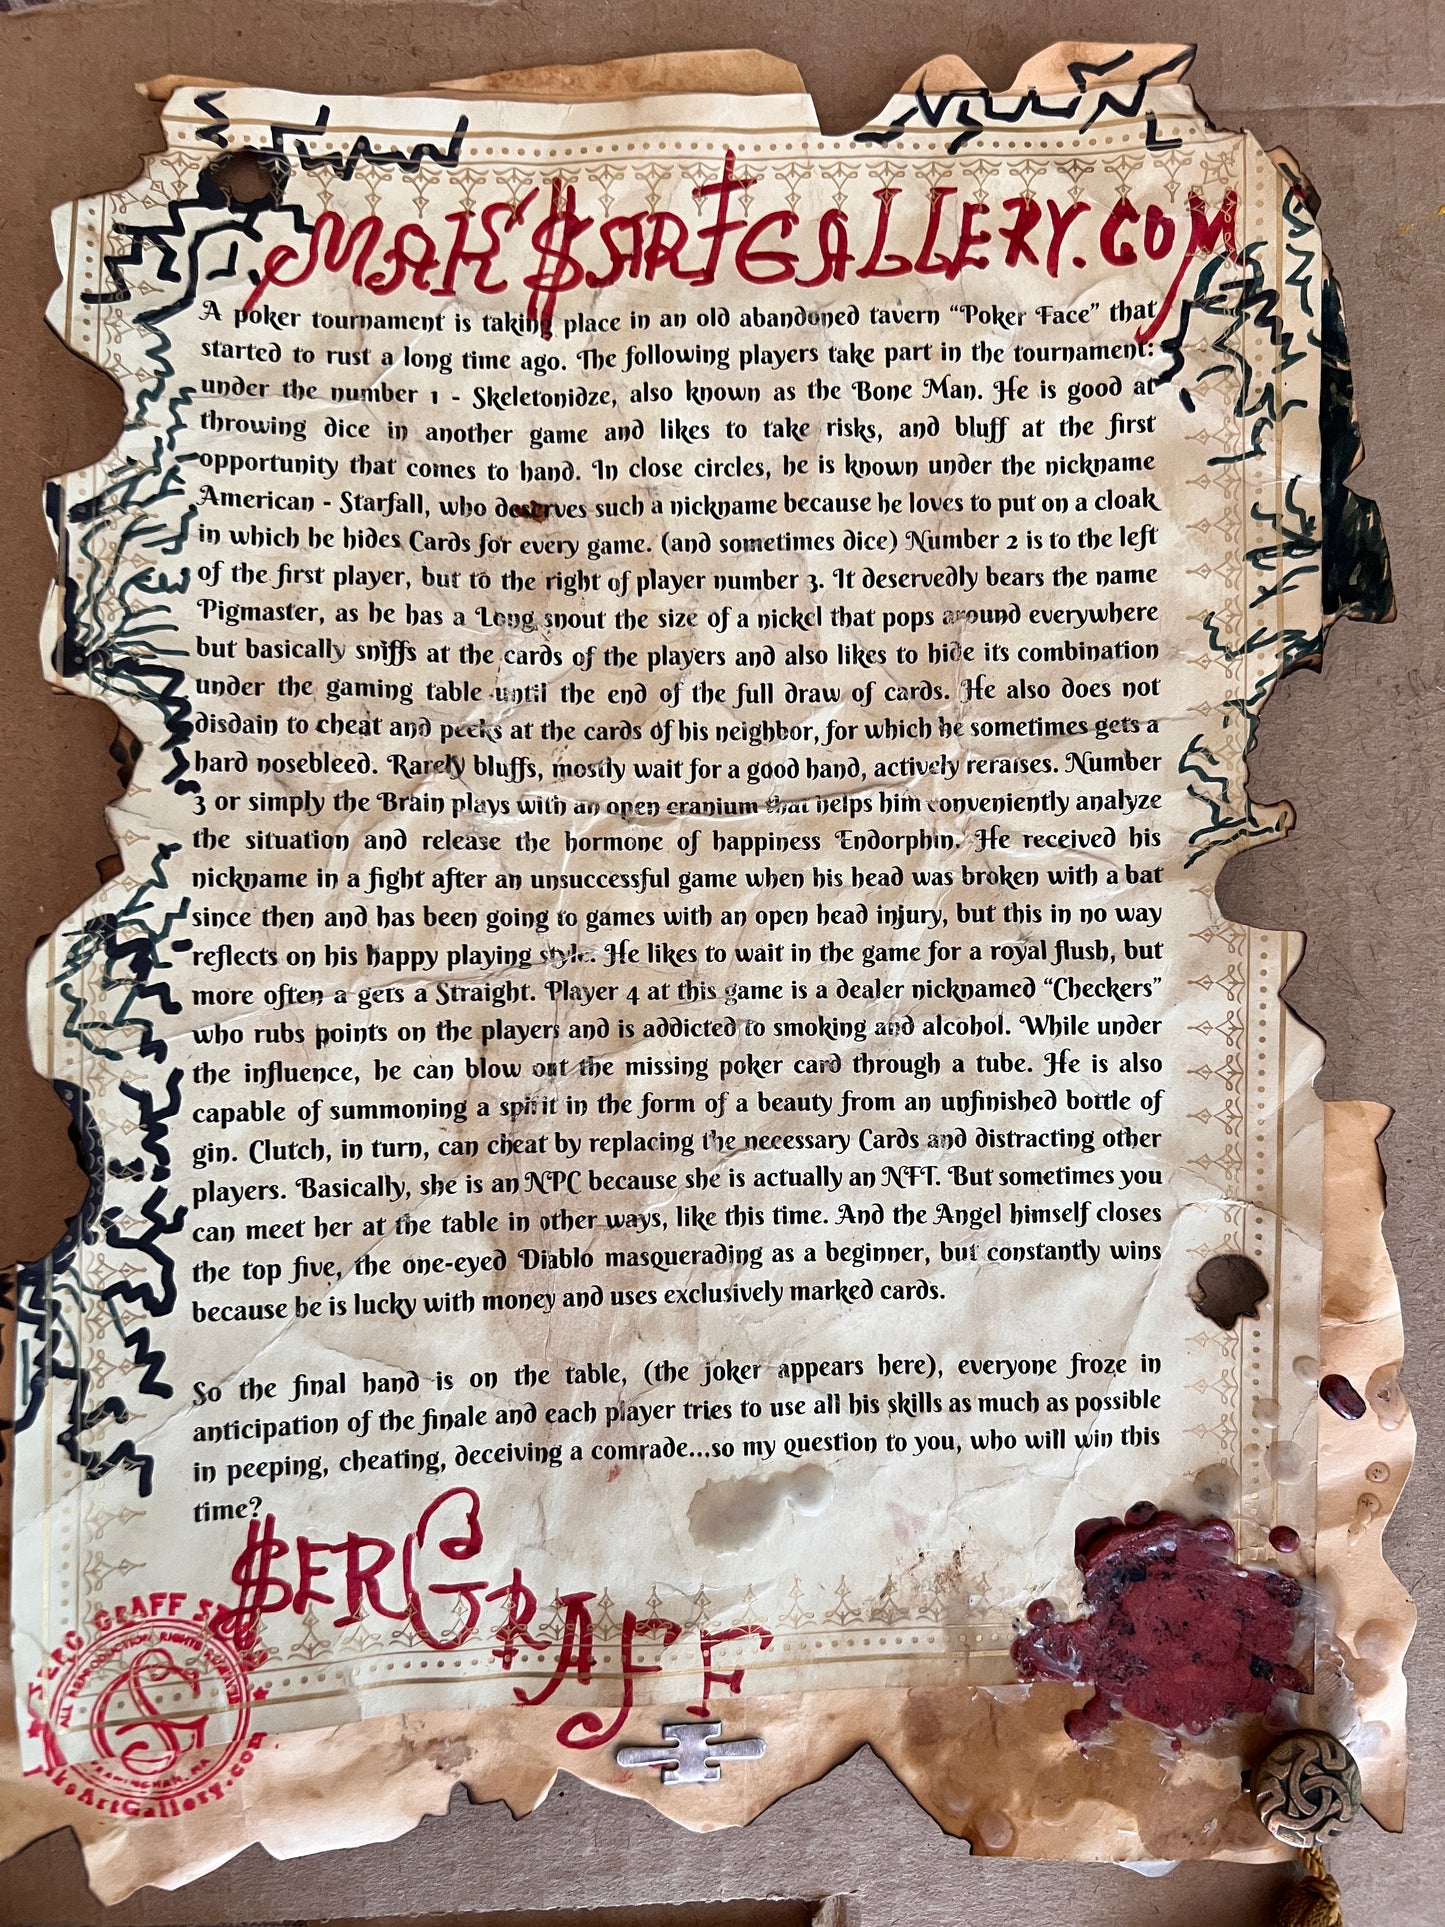 MAK'$ARTGALLERY.COM
A poker tournament is taking place in an old abandoned tavern “Poker Face” that
started to rust a long time ago. The following players take part in the tournament:
under the number 1 - Skeletonidze, also known as the Bone Man. He is good at
throwing dice in another game and likes to take risks, and bluff at the first
opportunity that comes to hand. In close circles, he is known under the nickname
American - Starfall, who deserves such a nickname because he loves to put on a cloak
in which he hides Cards for every game. (and sometimes dice) Number 2 is to the left
of the first player, but to the right of player number 3. It deservedly bears the name
Pigmaster, as he has a Long snout the size of a nickel that pops around everywhere
but basically sniffs at the cards of the players and also likes to hide its combination
under the gaming table until the end of the full draw of cards. He also does not
disdain to cheat and peeks at the cards of his neighbor, for which he sometimes gets a
hard nosebleed. Rarely bluffs, mostly wait for a good hand, actively reraises. Number
3 or simply the Brain plays with an open cranium that helps him conveniently analyze
the situation and release the hormone of happiness Endorphin. He received his
nickname in a fight after an unsuccessful game when his head was broken with a bat
since then and has been going to games with an open head injury, but this in no way
reflects on his happy playing style. He likes to wait in the game for a royal flush, but
more often a gets a Straight. Player 4 at this game is a dealer nicknamed “Checkers”
who rubs points on the players and is addicted to smoking and alcohol. While under
the influence, he can blow out the missing poker card through a tube. He is also
capable of summoning a spirit in the form of a beauty from an unfinished bottle of
gin. Clutch, in turn, can cheat by replacing the necessary Cards and distracting other
players. Basically, she is an NPC because she is actually an NFT. But sometimes you
can meet her at the table in other ways, like this time. And the Angel himself closes
the top five, the one-eyed Diablo masquerading as a beginner, but constantly wins
because he is lucky with money and uses exclusively marked cards.
So the final hand is on the table, (the joker appears here), everyone froze in
anticipation of the finale and each player tries to use all his skills as much as possible
in peeping, cheating, deceiving a comrade...so my question to you, who will win this
time?
$ERGRAFF
SERG GRAFF
ALL REPRODUCTION RIGHTS
FRAMINGHAM, MA
ArtGallery.com